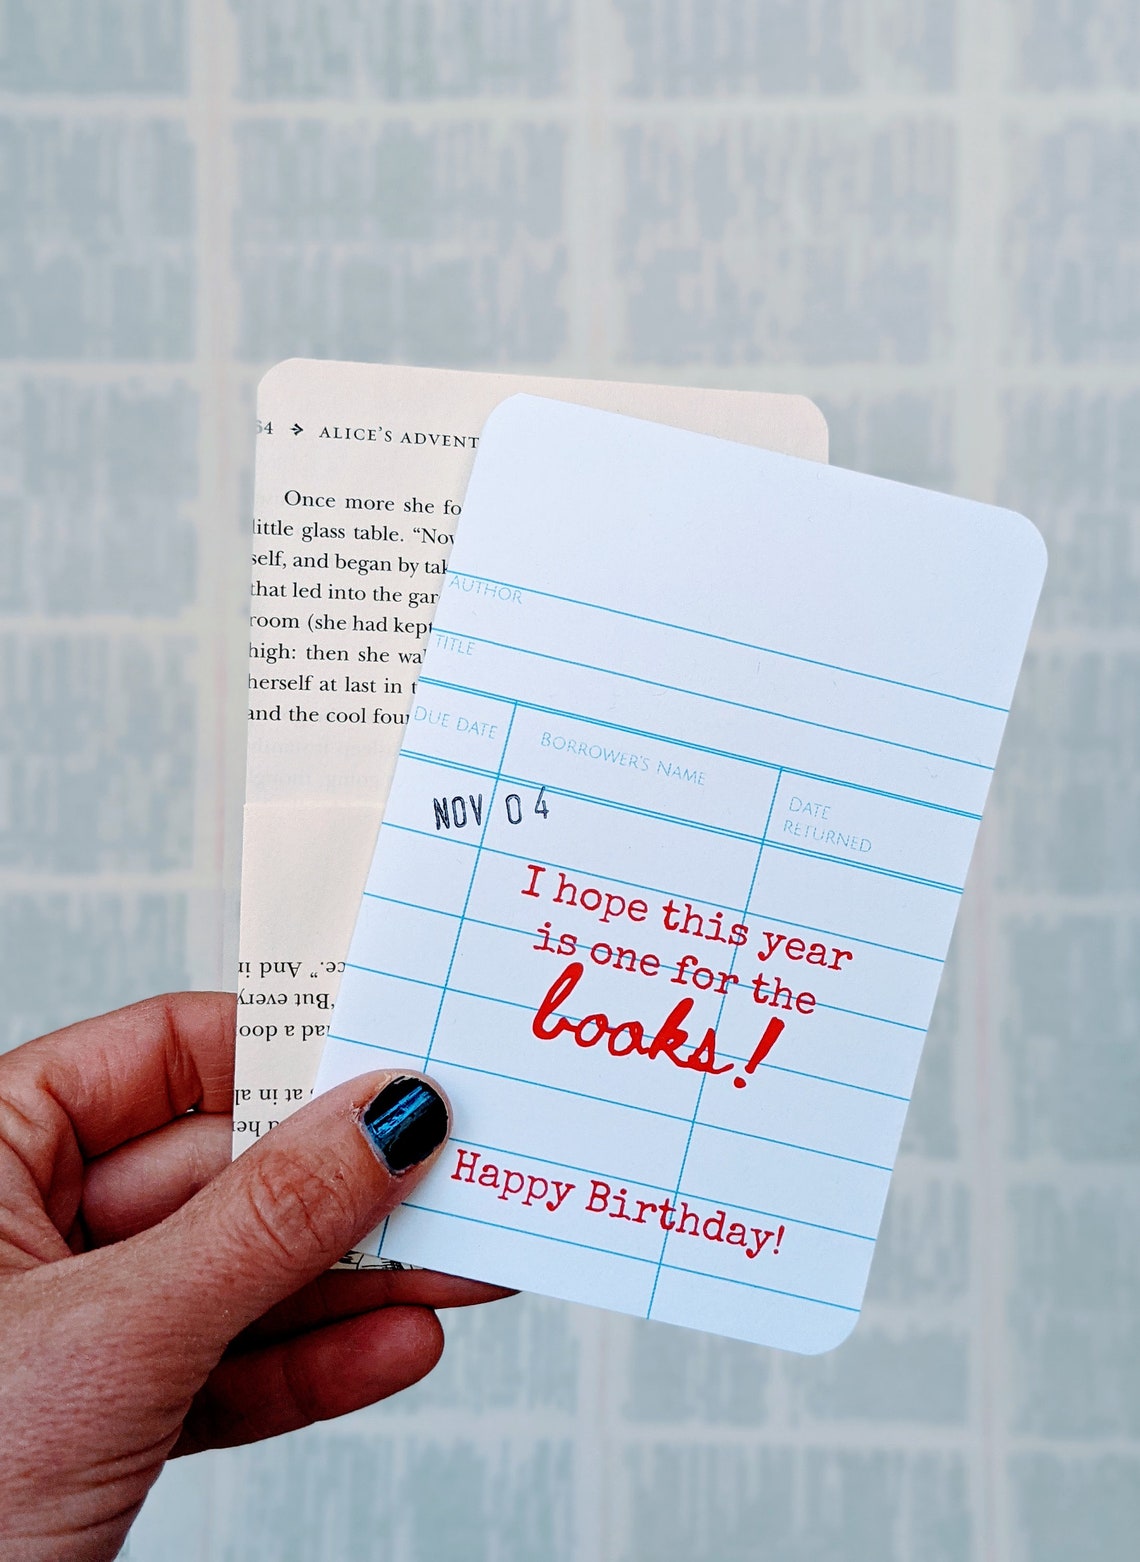 64 → ALICE'S ADVENT
Once more she fo
little glass table. “Nov
self, and began by tak
that led into the gar
room (she had kept
high: then she wal
herself at last in t
and the cool four
ce.” And i
But every
ad a doo
at in al
AUTHOR
TITLE
DUE DATE
BORROWER'S NAME
DATE
RETURNED
NOV 04
I hope this year
is one for the
books!
Happy Birthday!